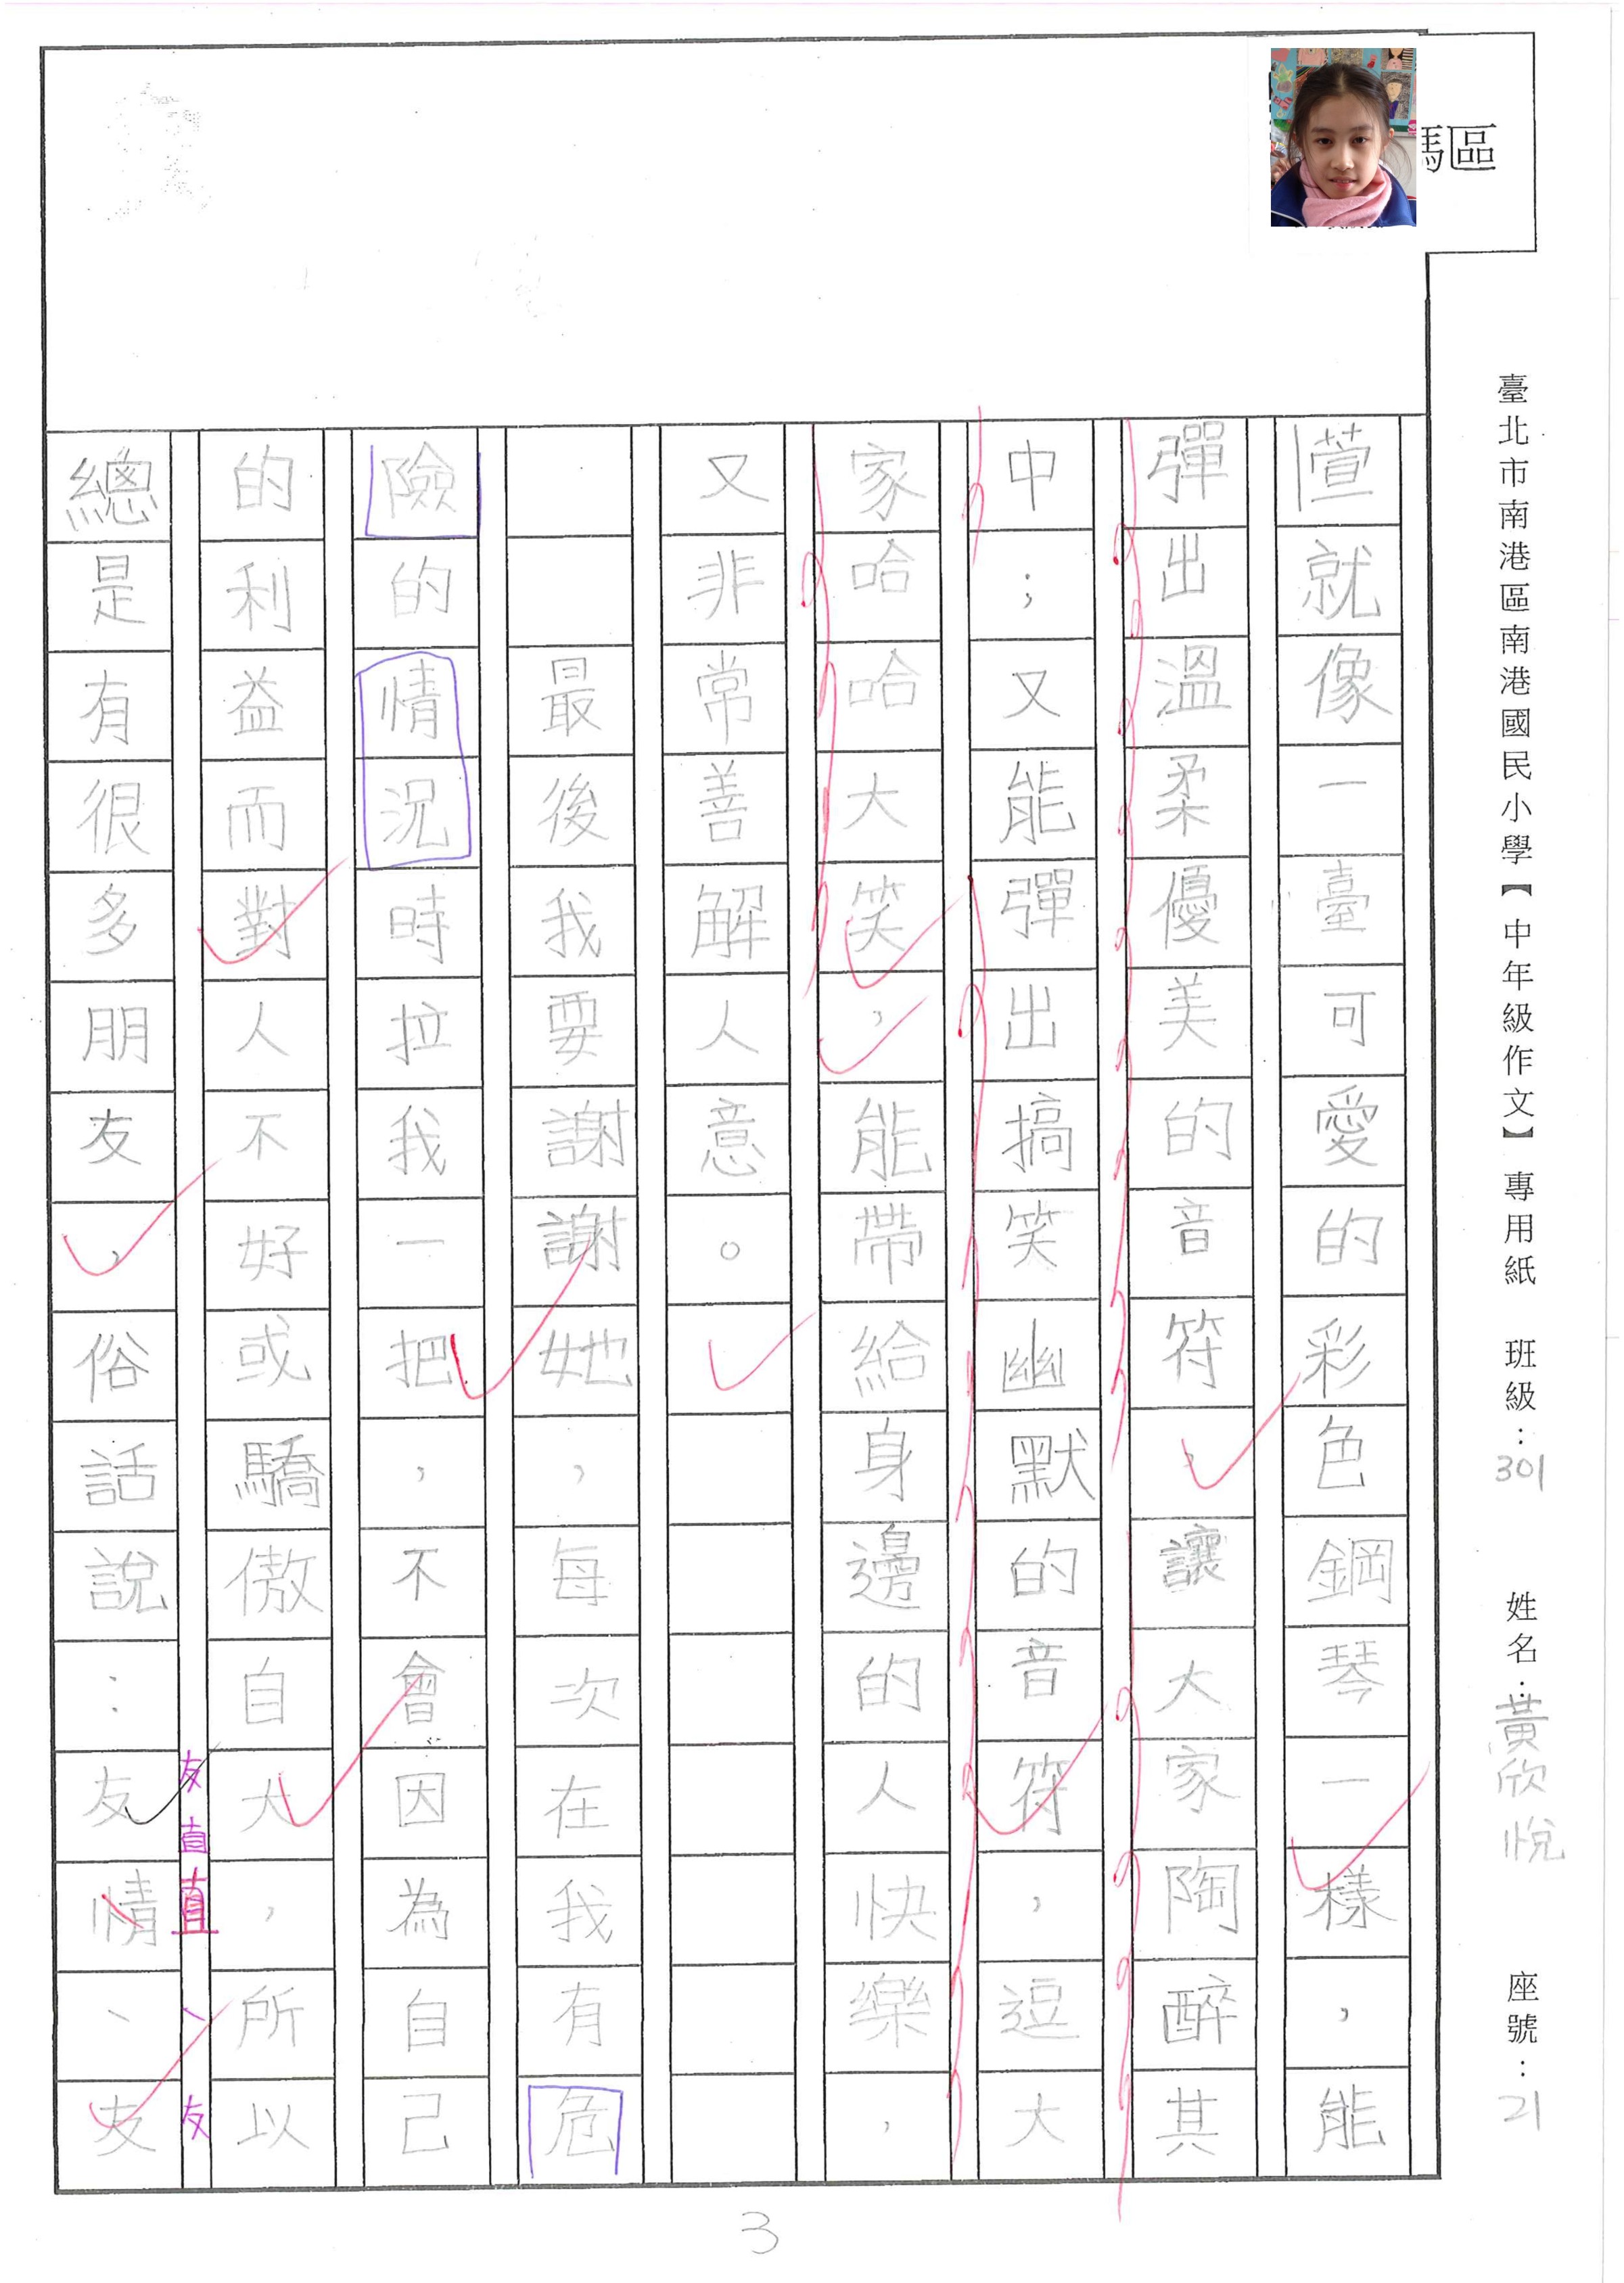 碼區
臺北市南港區南港國民小學【中年級作文】專用紙 班級：301 姓名：黃欣悅 座號：21
萱就像一臺可愛的彩色鋼琴一樣，能
彈出溫柔優美的音符，讓大家陶醉其
中；又能彈出搞笑幽默的音符，逗大
家哈哈大笑，能帶給身邊的人快樂，
又非常善解人意。
最後我要謝謝她，每次在我有危
險的情況時拉我一把，不會因為自己
的利益而對人不好或驕傲自大，所以
友直直、友
總是有很多朋友，俗話說：友情、友
3